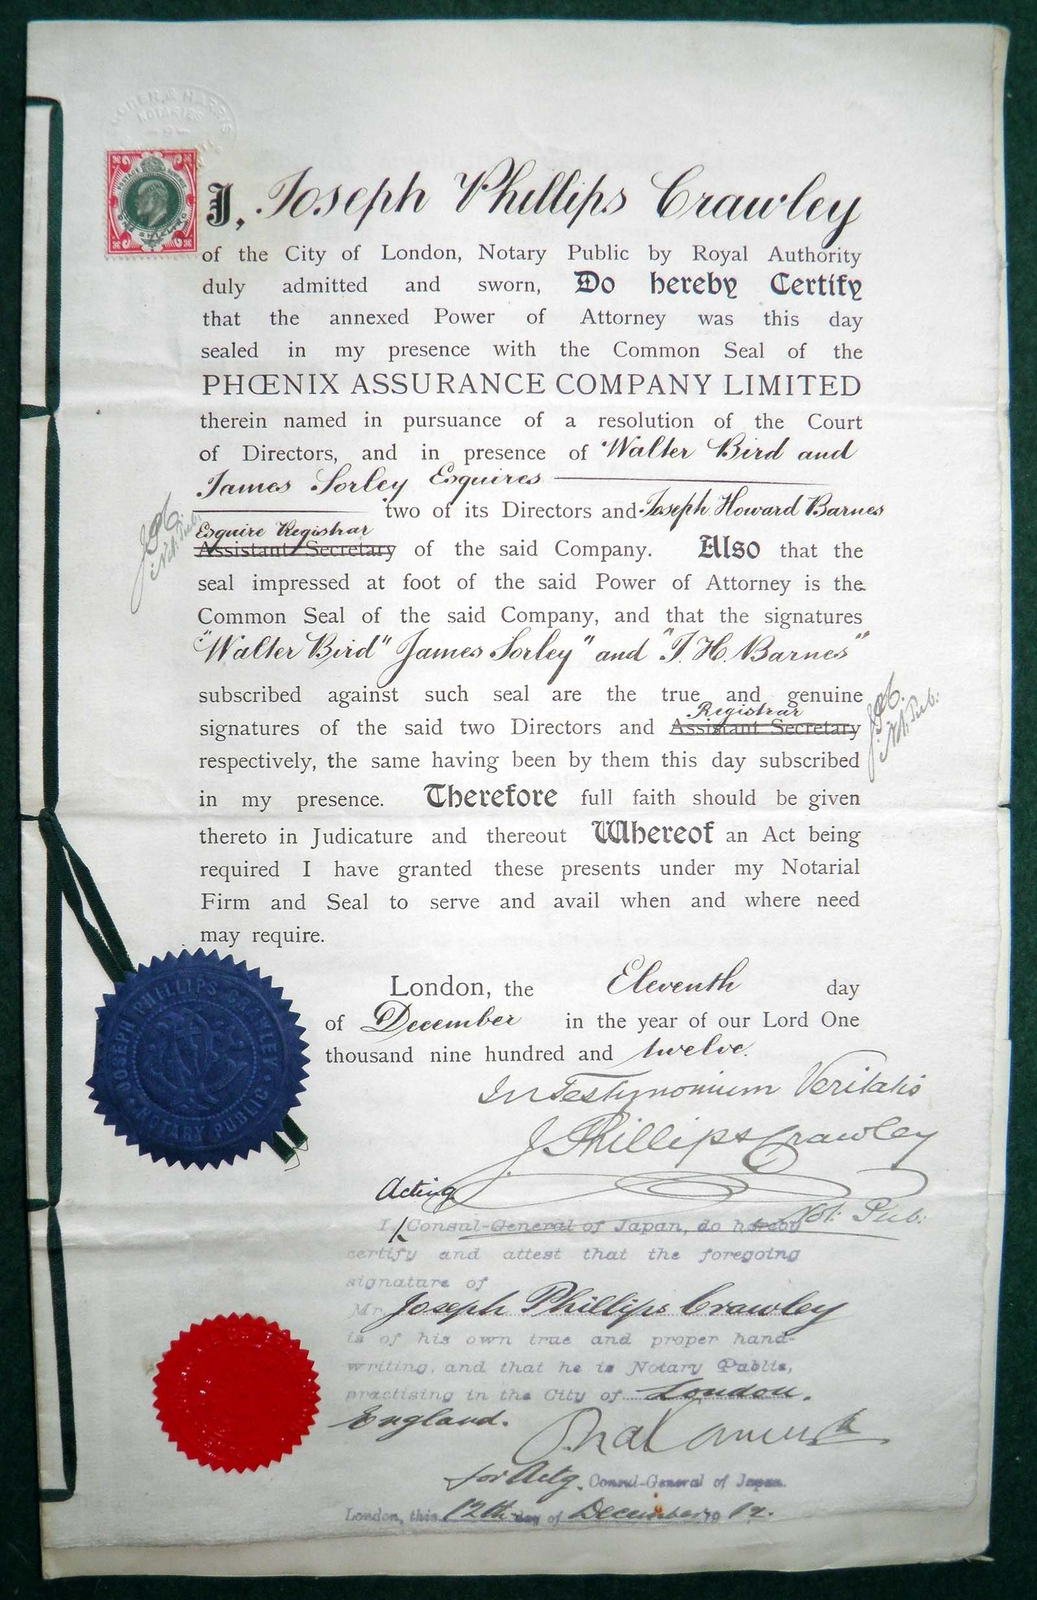 I, Joseph Phillips Crawley
of the City of London, Notary Public by Royal Authority
duly admitted and sworn, Do hereby Certify
that the annexed Power of Attorney was this day
sealed in my presence with the Common Seal of the
PHŒNIX ASSURANCE COMPANY LIMITED
therein named in pursuance of a resolution of the Court
of Directors, and in presence of Walter Bird and
James Sorley Esquires
two of its Directors and Joseph Howard Barnes
Esquire Registrar
Assistant Secretary of the said Company. Also that the
seal impressed at foot of the said Power of Attorney is the
Common Seal of the said Company, and that the signatures
"Walter Bird" James Sorley" and "J. H. Barnes"
subscribed against such seal are the true and genuine
Registrar
signatures of the said two Directors and Assistant Secretary
respectively, the same having been by them this day subscribed
in my presence. Therefore full faith should be given
thereto in Judicature and thereout Whereof an Act being
required I have granted these presents under my Notarial
Firm and Seal to serve and avail when and where need
may require.
London, the Eleventh day
of December in the year of our Lord One
thousand nine hundred and twelve.
In Testimonium Veritatis
J Phillips Crawley
Not: Pub:
JOSEPH PHILLIPS CRAWLEY
NOTARY PUBLIC
Acting
I, Consul-General of Japan, do hereby
certify and attest that the foregoing
signature of
Mr. Joseph Phillips Crawley
is of his own true and proper hand-
writing, and that he is Notary Public,
practising in the City of London,
England.
for Actg. Consul-General of Japan.
London, this 12th day of December 1912.